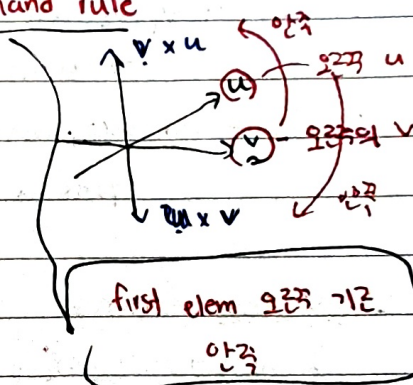 hand rule
v × u
안쪽
u
오른쪽 u
v
오른쪽의 v
u × v
안쪽
first elem 오른쪽 기준.
안쪽